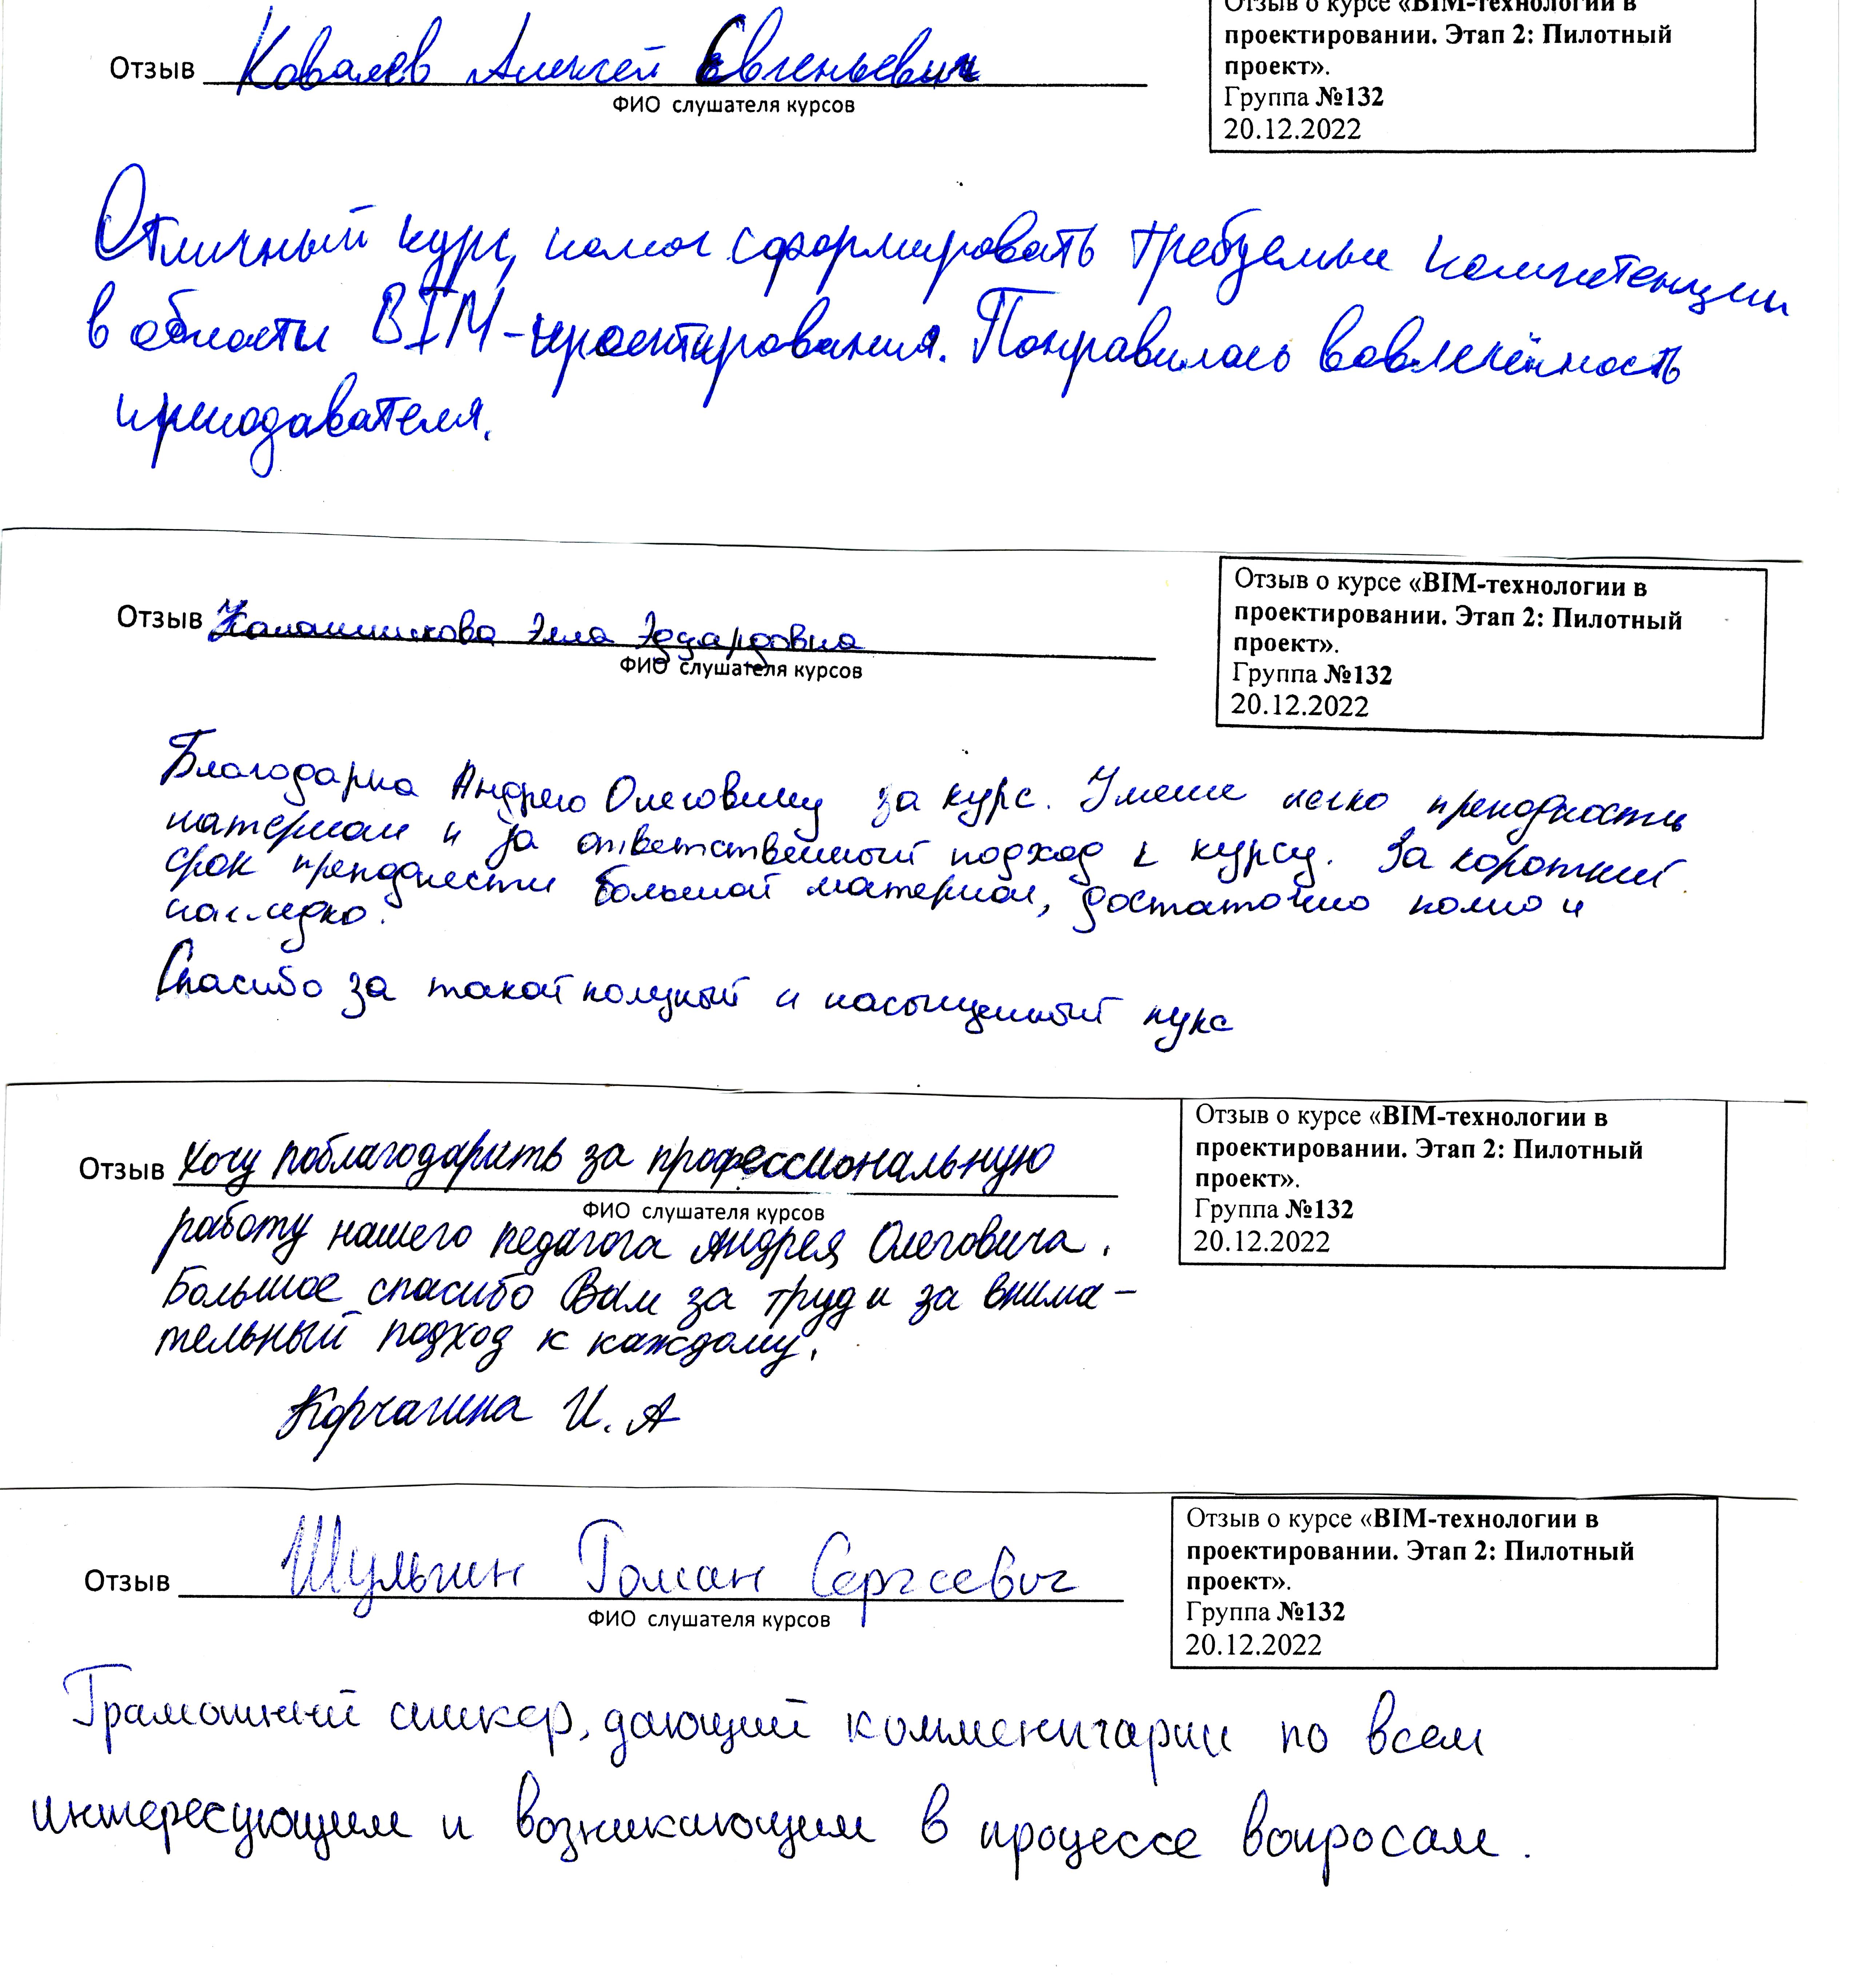 Отзыв о курсе «BIM-технологии в
проектировании. Этап 2: Пилотный
проект».
Группа №132
20.12.2022
Отзыв Ковалев Алексей Евгеньевич
ФИО слушателя курсов
Отличный курс, помог сформировать требуемые компетенции
в области BIM-проектирования. Понравилась вовлечённость
преподавателя.
Отзыв о курсе «BIM-технологии в
проектировании. Этап 2: Пилотный
проект».
Группа №132
20.12.2022
Отзыв Калашникова Элла Эдуардовна
ФИО слушателя курсов
Благодарна Андрею Олеговичу за курс. Умение легко преподнести
материал и за ответственный подход к курсу. За короткий
срок преподнести большой материал, достаточно полно и
наглядно.
Спасибо за такой нужный и насыщенный курс
Отзыв о курсе «BIM-технологии в
проектировании. Этап 2: Пилотный
проект».
Группа №132
20.12.2022
Отзыв Хочу поблагодарить за профессиональную
ФИО слушателя курсов
работу нашего педагога Андрея Олеговича.
Большое спасибо Вам за труд и за внима-
тельный подход к каждому.
Корчагина И. А
Отзыв о курсе «BIM-технологии в
проектировании. Этап 2: Пилотный
проект».
Группа №132
20.12.2022
Отзыв Шульгин Роман Сергеевич
ФИО слушателя курсов
Грамотный спикер, дающий комментарии по всем
интересующим и возникающим в процессе вопросам.